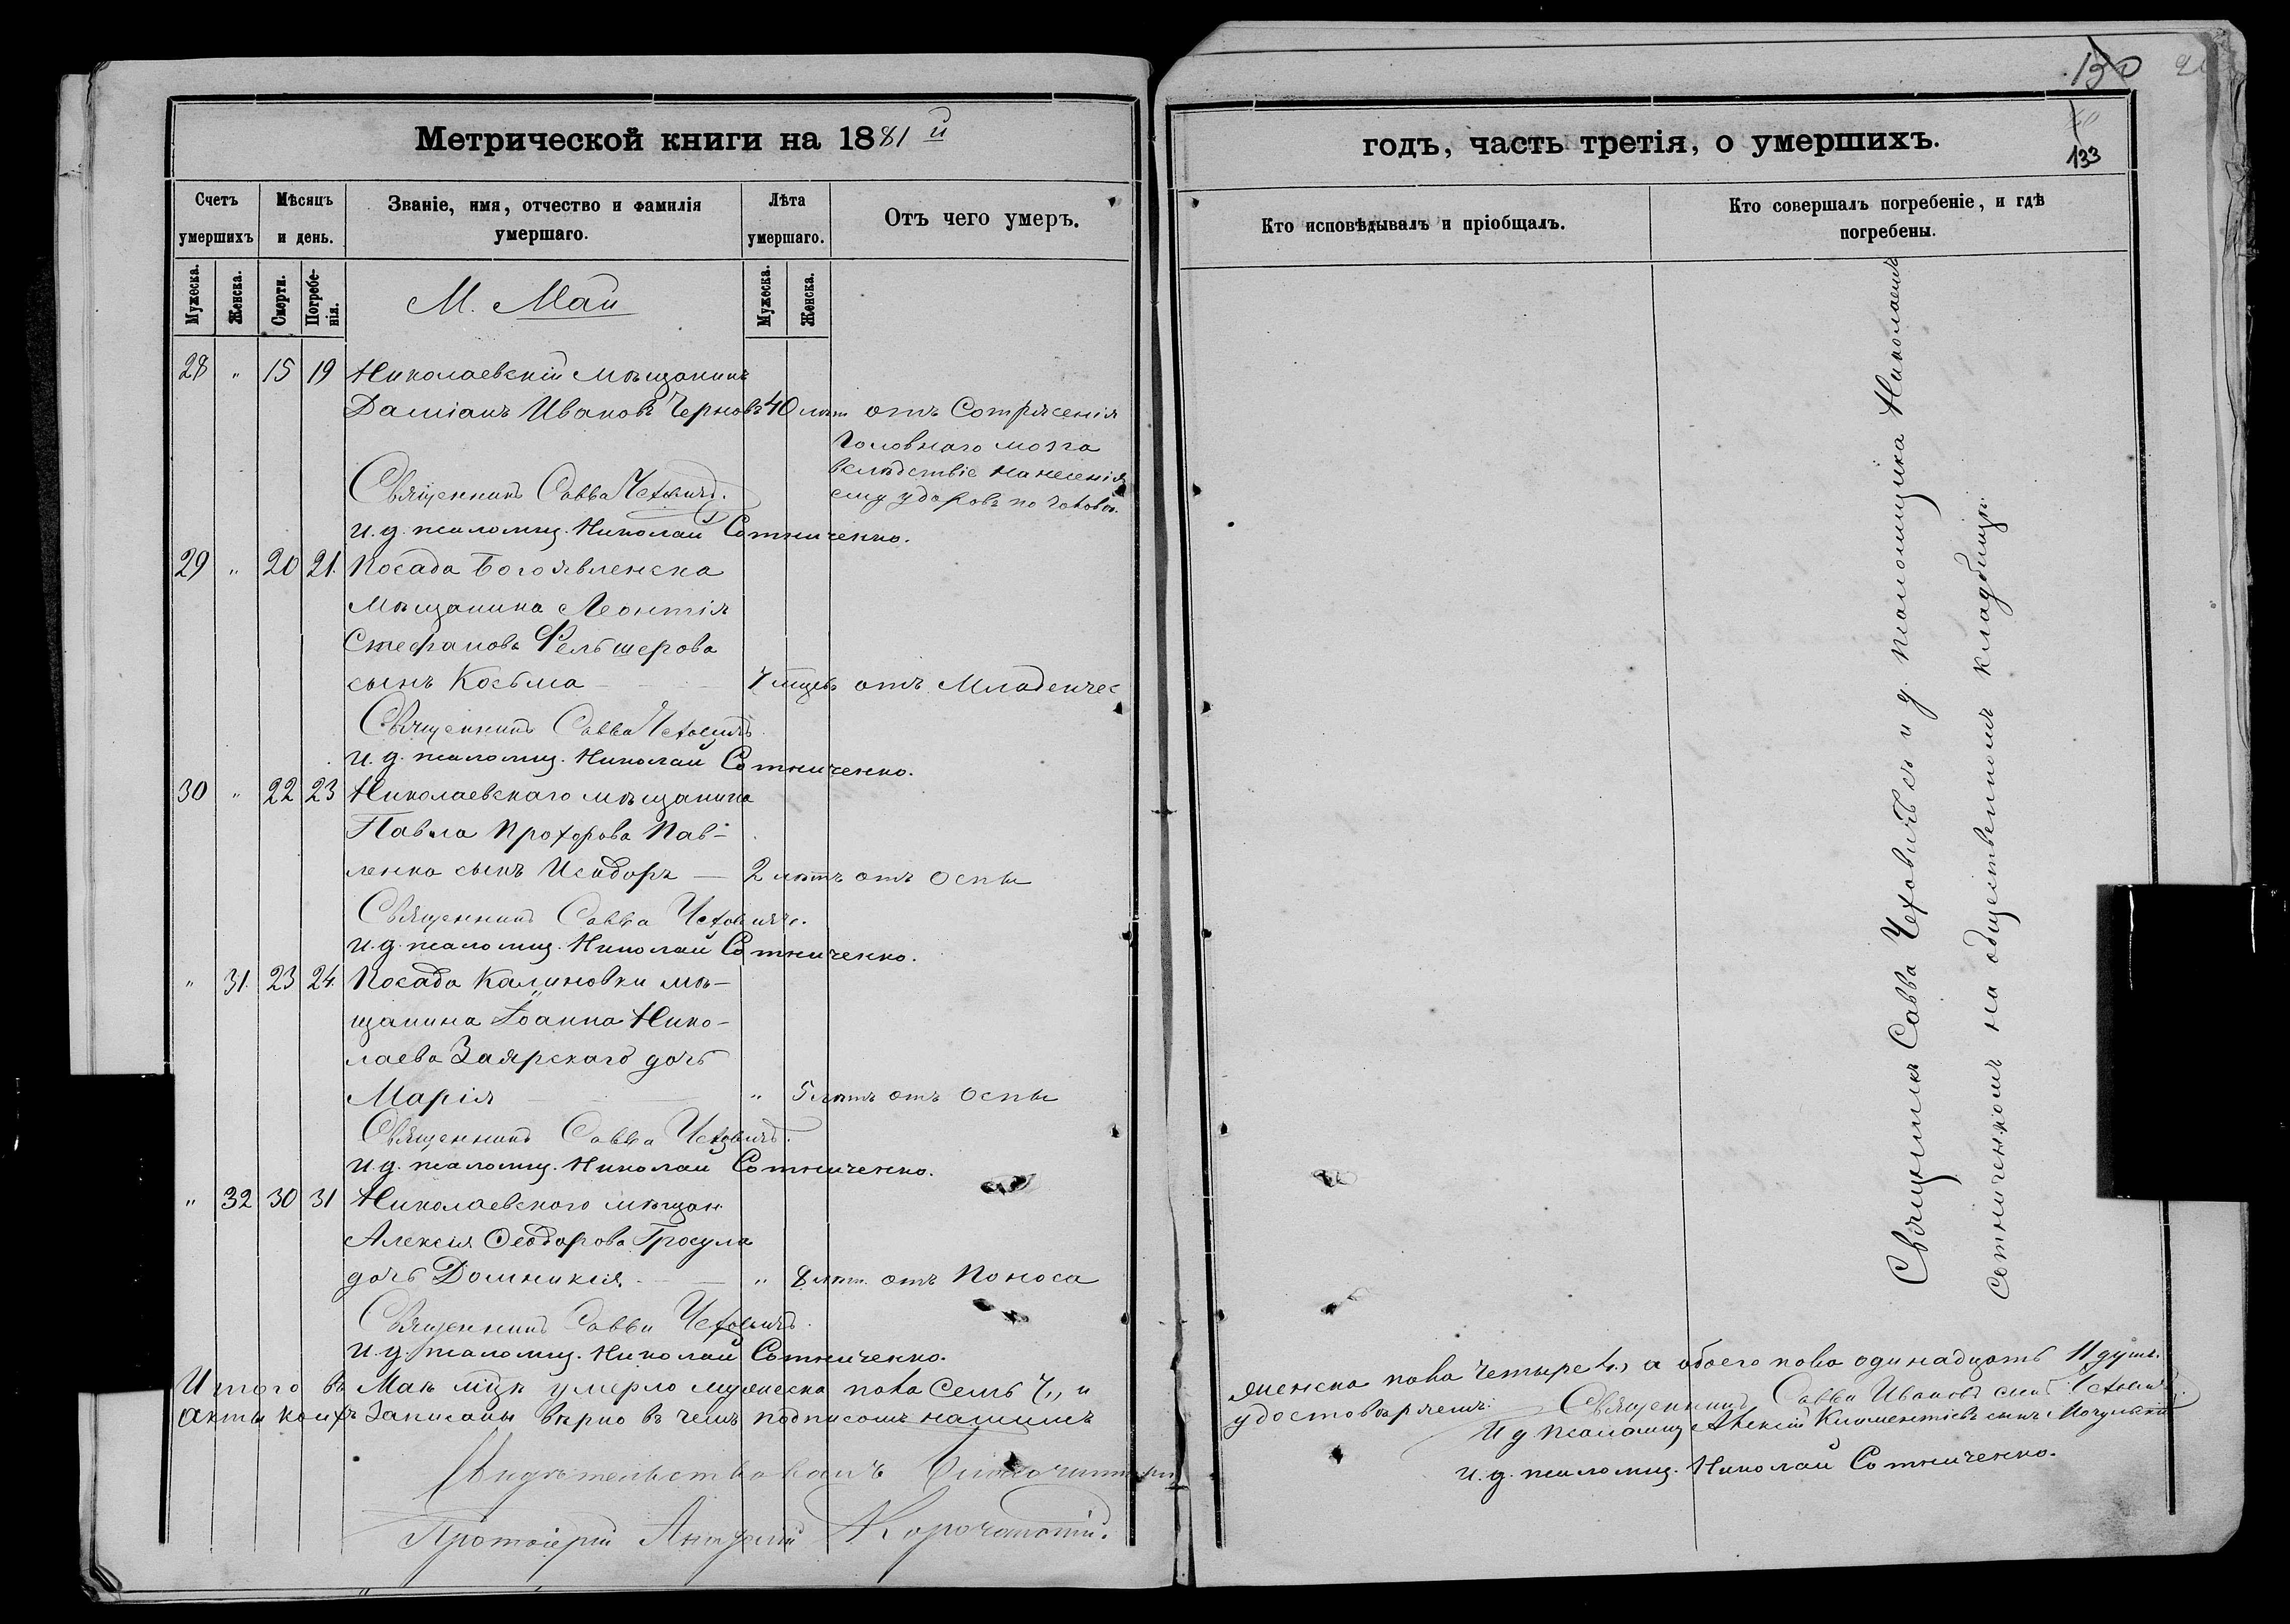 Метрической книги на 1881й
Счетъ умершихъ
Мѣсяцъ и день.
Званіе, имя, отчество и фамилія умершаго.
Лѣта умершаго.
Отъ чего умеръ.
Мужеска.
Женска.
Смерти.
Погребенія.
М. Май
Мужеска.
Женска.
28 " 15 19 Николаевскій мѣщанинъ
Даміанъ Ивановъ Черновъ 40 лѣт отъ Сотрясенія
головнаго мозга
вслѣдствіе нанесенія
ему ударовъ по головѣ.
Священникъ Савва Чеховичъ.
И. д. псаломщ. Николай Сотниченко.
29 " 20 21. Посада Богоявленска
мѣщанина Леонтія
Стефанова Фельшерова
сынъ Косьма 7 мцевъ отъ Младенчес
Священникъ Савва Чеховичъ.
И. д. псаломщ. Николай Сотниченко.
30 " 22 23 Николаевскаго мѣщанина
Павла Прохорова Пав-
ленка сынъ Исидоръ — 2 лѣтъ отъ Оспы
Священникъ Савва Чеховичъ.
И. д. псаломщ. Николай Сотниченко.
" 31. 23 24. Посада Калиновки мѣ-
щанина Іоанна Нико-
лаева Заярскаго дочь
Марія " 5 лѣтъ отъ Оспы
Священникъ Савва Чеховичъ.
И. д. псаломщ. Николай Сотниченко.
" 32 30 31 Николаевского мѣщан.
Алексія Ѳеодорова Гросула
дочь Домникія " 8 лѣт. отъ Поноса
Священникъ Савва Чеховичъ.
И. д. псаломщ. Николай Сотниченко.
Итого въ Маѣ мцѣ умерло мужеска пола Семь 7, и
акты коихъ Записаны вѣрно въ чемъ подписомъ нашимъ
Свидѣтельствовалъ Благочинный
Протоіерей Корочанскій.
130
133
годъ, часть третія, о умершихъ.
Кто исповѣдывалъ и пріобщалъ.
Кто совершалъ погребеніе, и гдѣ погребены.
Священникъ Савва Чеховичъ съ и д. псаломщика Николаемъ
Сотниченкомъ на общественномъ кладбищѣ.
женска пола четыре 4, а обоего пола одинадцать 11 душъ.
удостовѣряемъ: Священникъ Савва Ивановъ сынъ Чеховичъ.
И д псаломщ Алексій Климентіевъ сынъ
И. д. псаломщ. Николай Сотниченко.